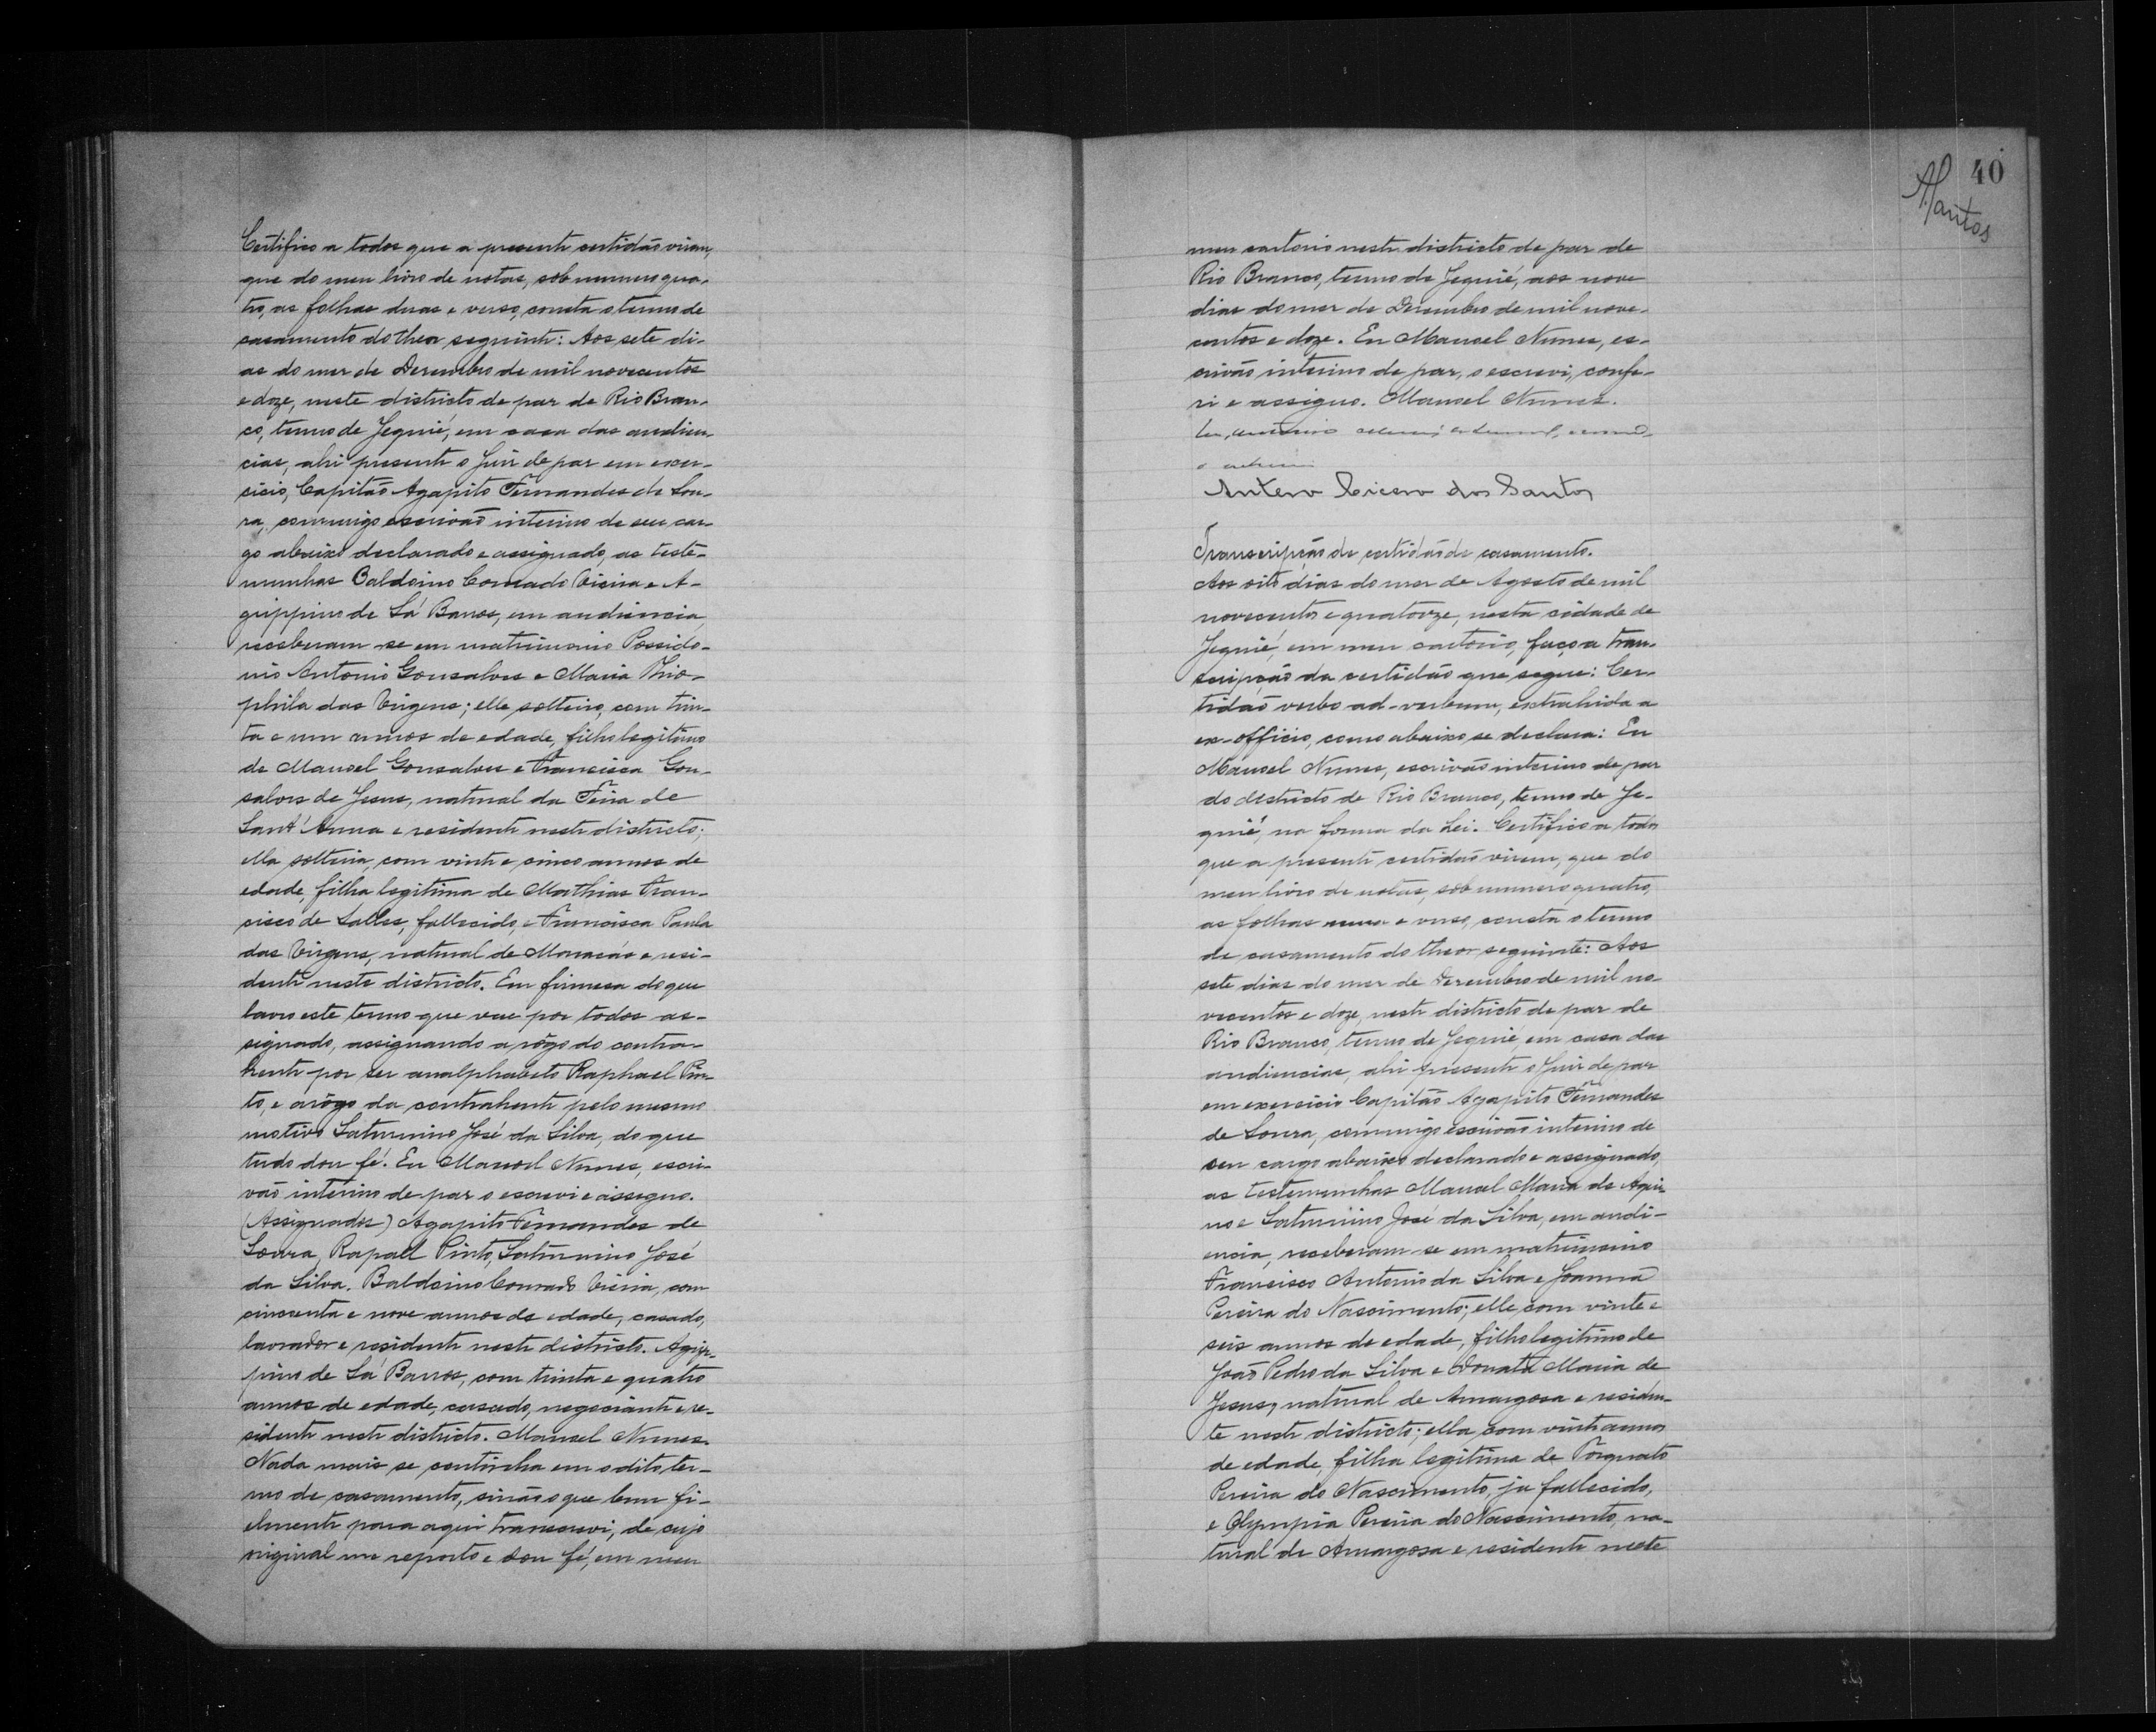 Certifico a todos que a presente certidão virem,
que do meu livro de notas, sob numero qua-
tro, as folhas duas e verso, consta o termo de
casamento do theor seguinte: Aos sete di-
as do mez de Dezembro de mil novecentos
e doze, neste districto de paz de Rio Bran-
co, termo de Jequié, em casa das audien-
cias, ahi presente o Juiz de paz em exer-
cicio, Capitão Agapito Fernandes de Sou-
za, commigo escrivão interino de seu car-
go abaixo declarado e assignado, as teste-
munhas Baldoino Conrado Vieira e A-
grippino de Sá Barros, em audiencia,
receberam-se em matrimonio Possido-
nio Antonio Gonsalves e Maria Thio-
phila das Virgens; elle solteiro, com trin-
ta e um annos de edade, filho legitimo
de Manoel Gonsalves e Francisca Gon-
salves de Jesus, natural da Feira de
Sant'Anna e residente neste districto;
ella solteira, com vinte e cinco annos de
edade, filha legitima de Mathias Fran-
cisco de Salles, fallecido, e Francisca Paula
das Virgens, natural de Maracás e resi-
dente neste districto. Em firmesa do que
lavro este termo que vae por todos as-
signado, assignando a rôgo do contra-
hente por ser analphabeto Raphael Pin-
to, e a rôgo da contrahente pelo mesmo
motivo Saturnino José da Silva, do que
tudo dou fé. Eu Manoel Nunes, escri-
vão interino de paz o escrevi e assigno.
(Assignados) Agapito Fernandes de
Souza, Rapael Pinto, Saturnino José
da Silva. Baldoino Conrado Vieira, com
cincoenta e nove annos de edade, casado,
lavrador e residente neste districto. Agrip-
pino de Sá Barros, com trinta e quatro
annos de edade, casado, negociante e re-
sidente neste districto. Manoel Nunes.
Nada mais se continha em o dito ter-
mo de casamento, sinão o que bem fi-
elmente para aqui transcrevi, de cujo
original me reporto e dou fé, em meu
40
meu cartorio neste districto de paz de
Rio Branco, termo de Jequié, aos nove
dias do mez de Dezembro de mil nove-
centos e doze. Eu Manoel Nunes, es-
crivão interino de paz, o escrevi, confe-
ri e assigno. Manoel Nunes.
Antero Cicero dos Santos
Transcripção de certidão de casamento.
Aos oito dias do mez de Agosto de mil
novecentos e quatorze, nesta cidade de
Jequié, em meu cartorio, faço a tran-
scripção da certidão que segue: Cer-
tidão verbo ad-verbum, extrahida a
ex-officio, como abaixo se declara: Eu
Manoel Nunes, escrivão interino de paz
do districto de Rio Branco, termo de Je-
quié, na forma da Lei. Certifico a todos
que a presente certidão virem, que do
meu livro de notas, sob numero quatro,
as folhas e verso, consta o termo
de casamento do theor seguinte: Aos
sete dias do mez de Dezembro de mil no-
vecentos e doze, neste districto de paz de
Rio Branco, termo de Jequié, em casa das
audiencias, ahi presente o Juiz de paz
em exercicio Capitão Agapito Fernandes
de Souza, commigo escrivão interino de
seu cargo abaixo declarado e assignado,
as testemunhas Manoel Maria de Aqui-
no e Saturnino José da Silva, em audi-
encia, receberam-se em matrimonio
Francisco Antonio da Silva e Joanna
Pereira do Nascimento; elle com vinte e
seis annos de edade, filho legitimo de
João Pedro da Silva e Donata Maria de
Jesus, natural de Amargosa e residen-
te neste districto; ella com vinte annos
de edade, filha legitima de Torquato
Pereira do Nascimento, ja fallecido,
e Olympia Pereira do Nascimento, na-
tural de Amargosa e residente neste